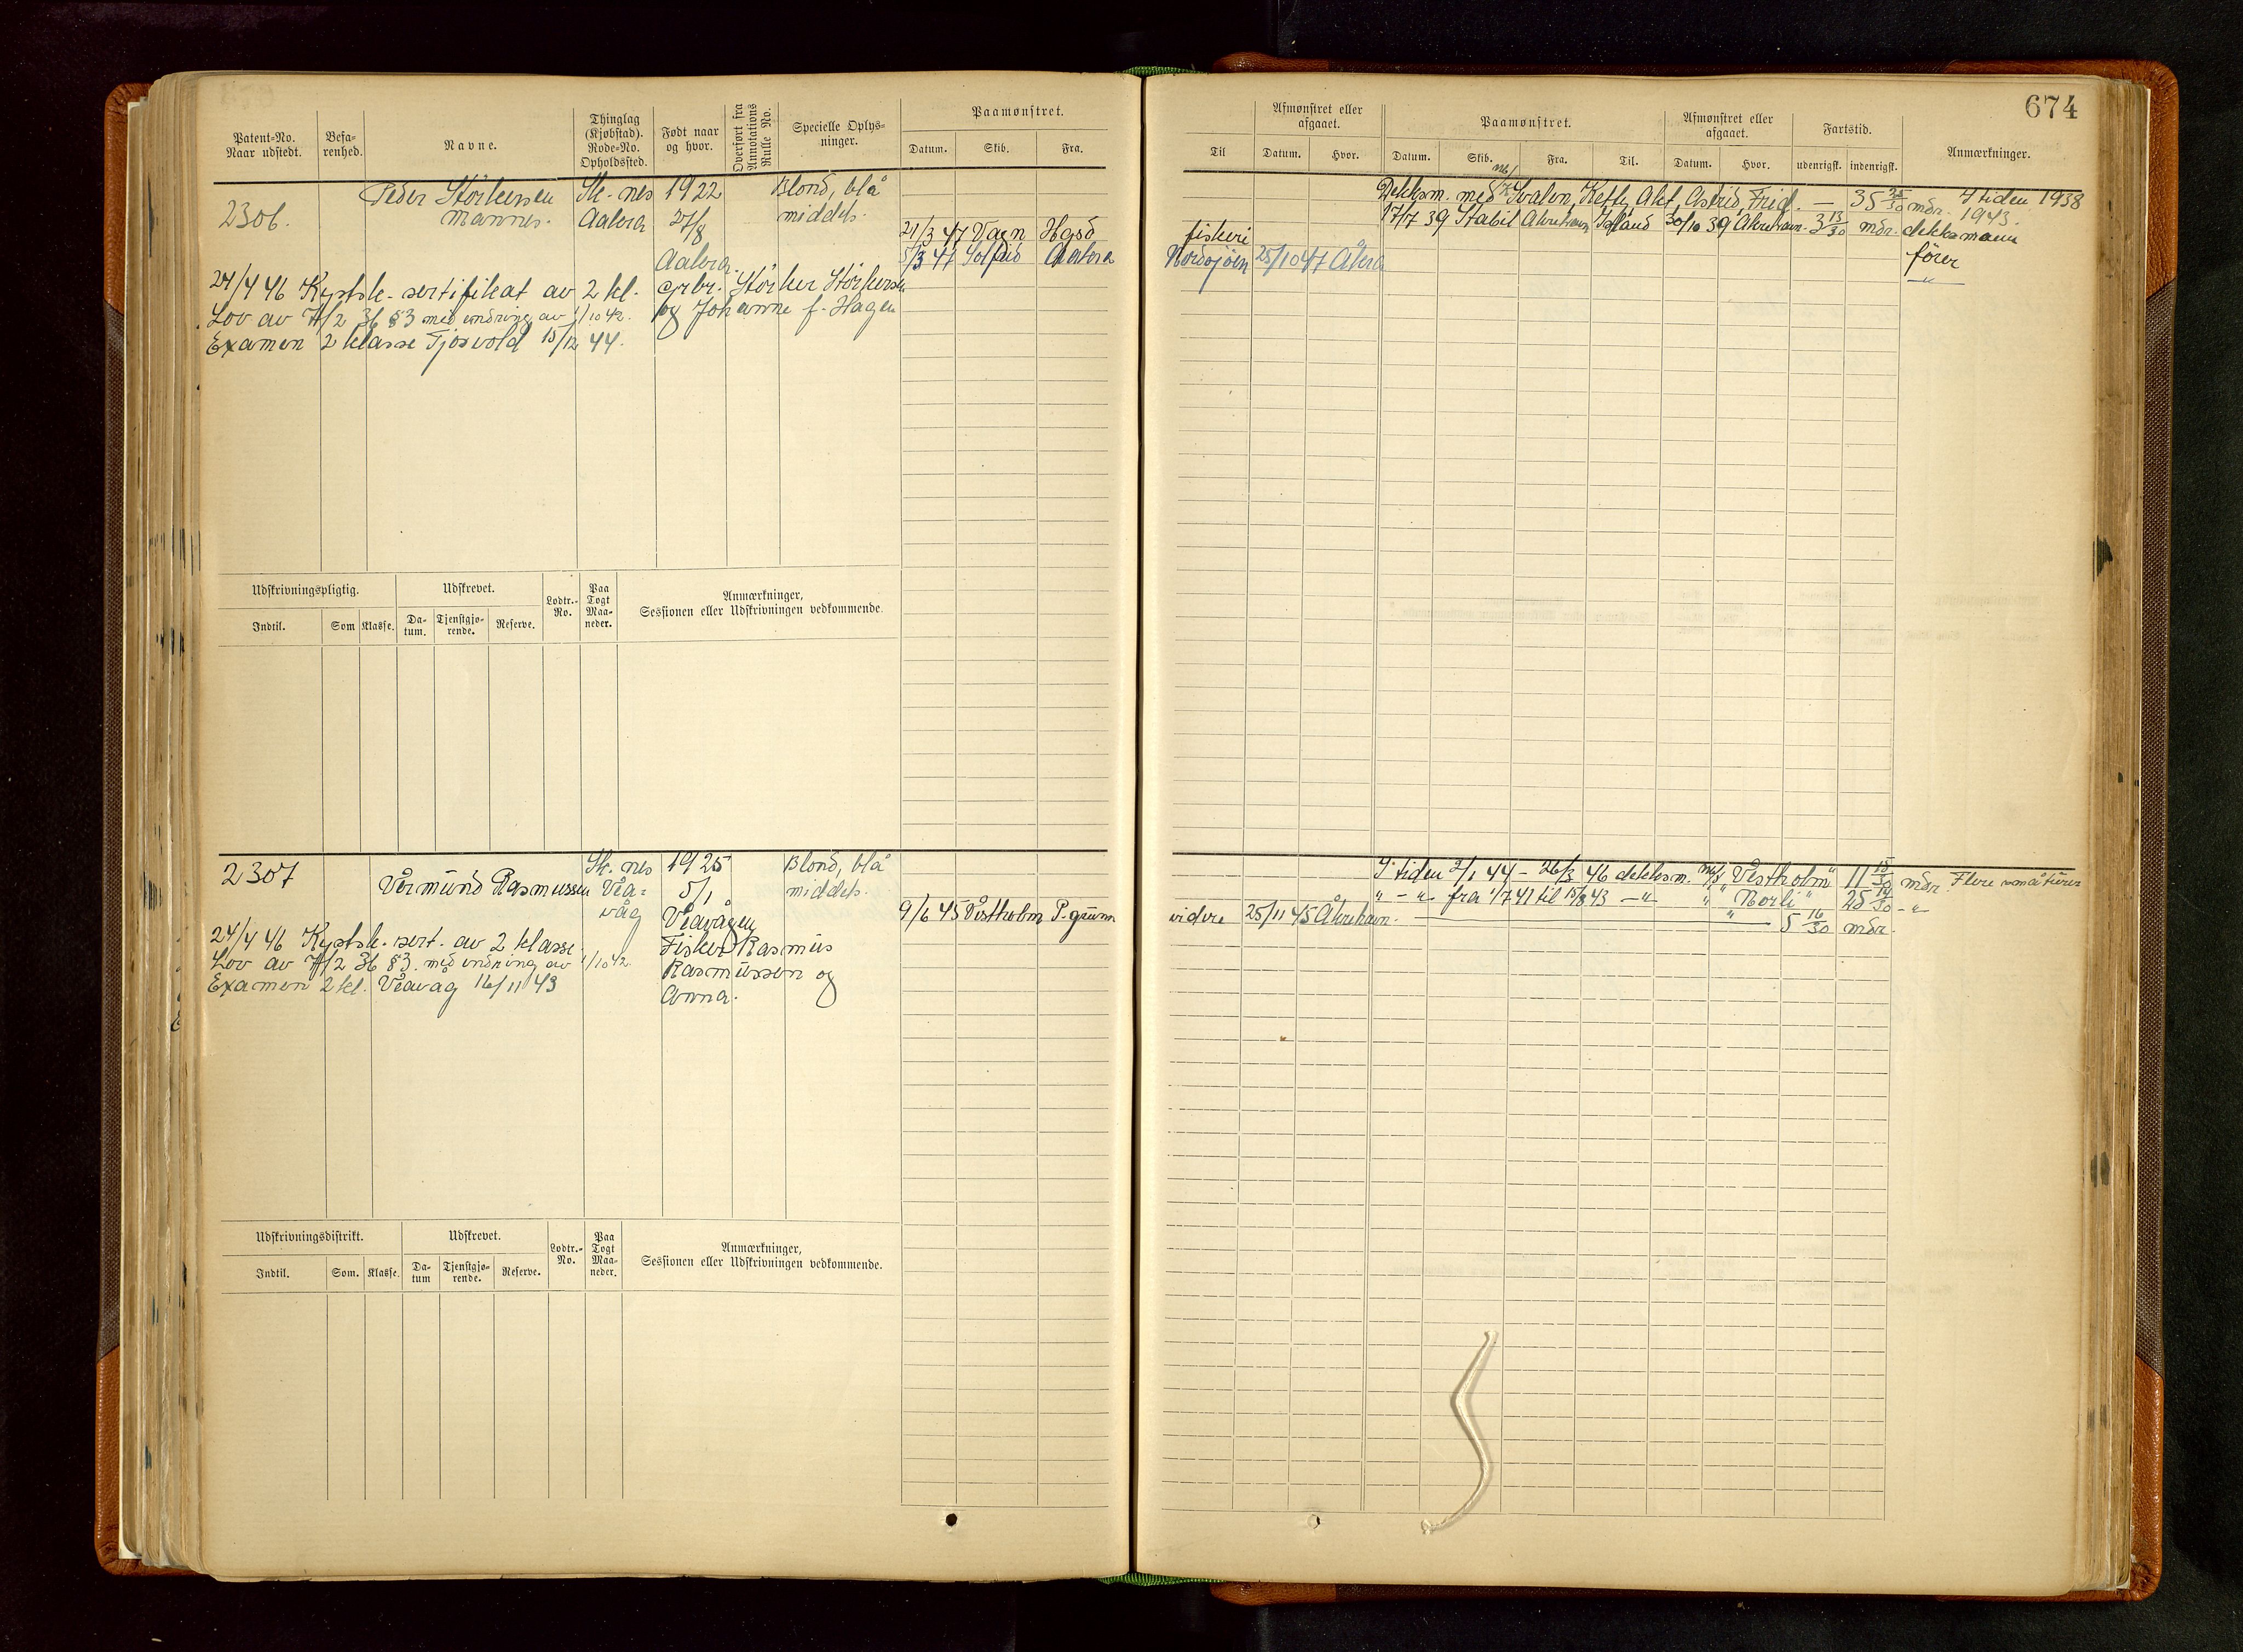 674
Patent-No. Naar udstedt.
Befa-renhed.
Navne.
Thinglag (Kjøbstad). Rode-No. Opholdssted.
Født naar og hvor.
Overført fra Annotations Rulle No.
Specielle Oplys-ninger.
Paamønstret.
Datum. Skib. Fra.
Til
Afmønstret eller afgaaet.
Datum. Hvor.
Paamønstret.
Datum. Skib. Fra. Til.
Afmønstret eller afgaaet.
Datum. Hvor.
Fartstid.
udenrigsk. indenrigsk.
Anmærkninger.
2306.
Peder Störkersen
Mannes.
Sk.-nes
Aakra
1922
27/8
Aakra.
Blond, blå
middels.
21/3 47 Vagn Hgsd
fiskeri
5/3 47 Solfrid Aakra
Nordsjöen 25/10 47 Åkra
Dekksm. med Svalen, Kefly, Akt, Astrid, Frid. — 35 25/30 mdr.
I tiden 1938
1943.
17/7 39 Stabil Åkrehavn Island 30/10 39 Åkrehavn. 3 13/30 mdr. dekksmann
förer
—"—
24/4 46 Kystsk.-sertifikat av 2 kl.
Lov av 7/2 36 §3 med endring av 1/10 42.
Examen 2 klasse Tjosvold 15/12 44.
gr.br. Störker Störkersen
og Johanne f. Hagen
Udskrivningspligtig.
Indtil. Som Klasse.
Udskrevet.
Da-tum. Tjenstgjø-rende. Reserve.
Lodtr.-No.
Paa Togt Maa-neder.
Anmærkninger,
Sessionen eller Udskrivningen vedkommende.
2307
Vermund Rasmussen
Sk. nes
Vea-
våg
1925
5/1
Veavågen
Fisker Rasmus
Rasmussen og
Anna.
Blond, blå
middels.
9/6 45 Vestholm P.grunn
videre 25/11 45 Åkrehavn. — " — 5 16/30 mdr.
I tiden 2/1 44 – 26/3 46 dekksm. m/s "Vestholm" 11 15/30 mdr. Flere småturer
" – " fra 1/7 41 til 15/8 43 – " " "Norli" 25 14/30 – "
24/4 46 Kystsk.-sert. av 2 klasse.
Lov av 7/2 36 §3. med endring av 1/10 42
Examen 2 kl. Veavåg 16/11 43
Udskrivningsdistrikt.
Indtil. Som. Klasse.
Udskrevet.
Da-tum Tjenstgjø-rende. Reserve.
Lodtr.-No.
Paa Togt Maa-neder.
Anmærkninger,
Sessionen eller Udskrivningen vedkommende.